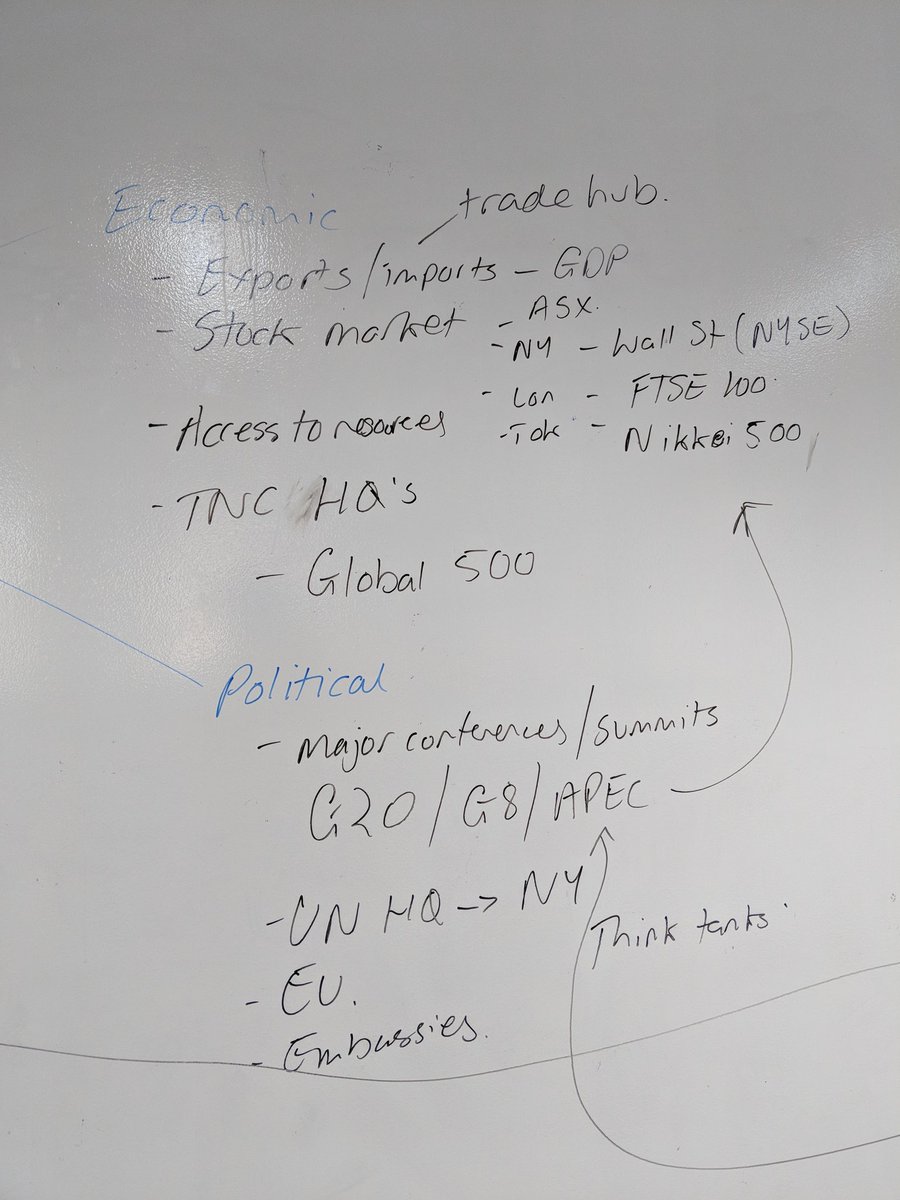 Economic
trade hub.
- Exports/imports - GDP
- Stock market - ASX.
- NY - Wall St (NYSE)
- Lon - FTSE 100
- Access to resources
- Tok - Nikkei 500
- TNC HQ's
- Global 500
Political
- Major conferences/summits
G20/G8/APEC
- UN HQ -> NY
Think tanks
- EU.
- Embassies.